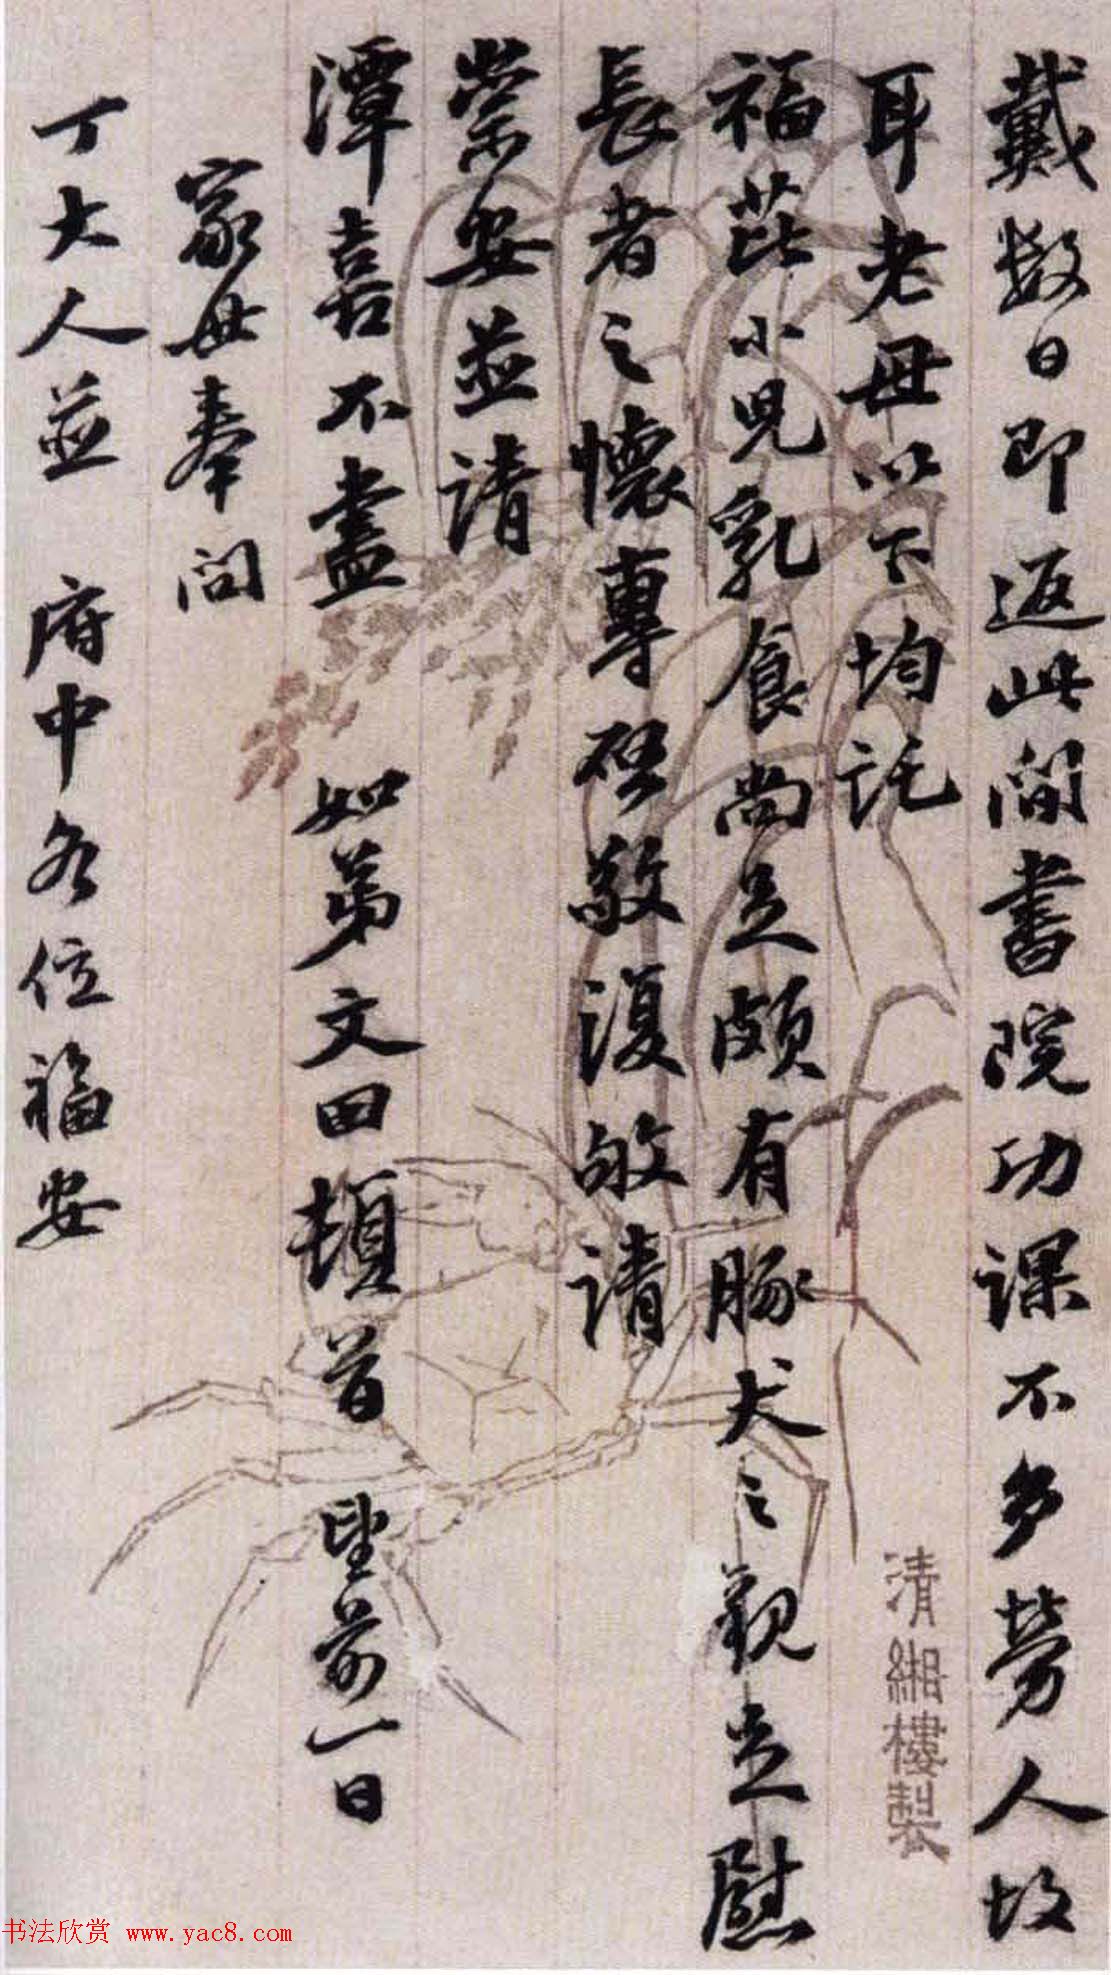 戴數日即返此間書院功課不多勞人故
耳老母以下均託
福茈小兒乳食尚足頗有豚犬之觀足慰
長者之懷專啓敬復敬請
崇安並請
潭喜不盡 如弟文田頓首 望前一日
家母奉問
丁大人並 府中各位福安
清緗樓製
书法欣赏 www.yac8.com